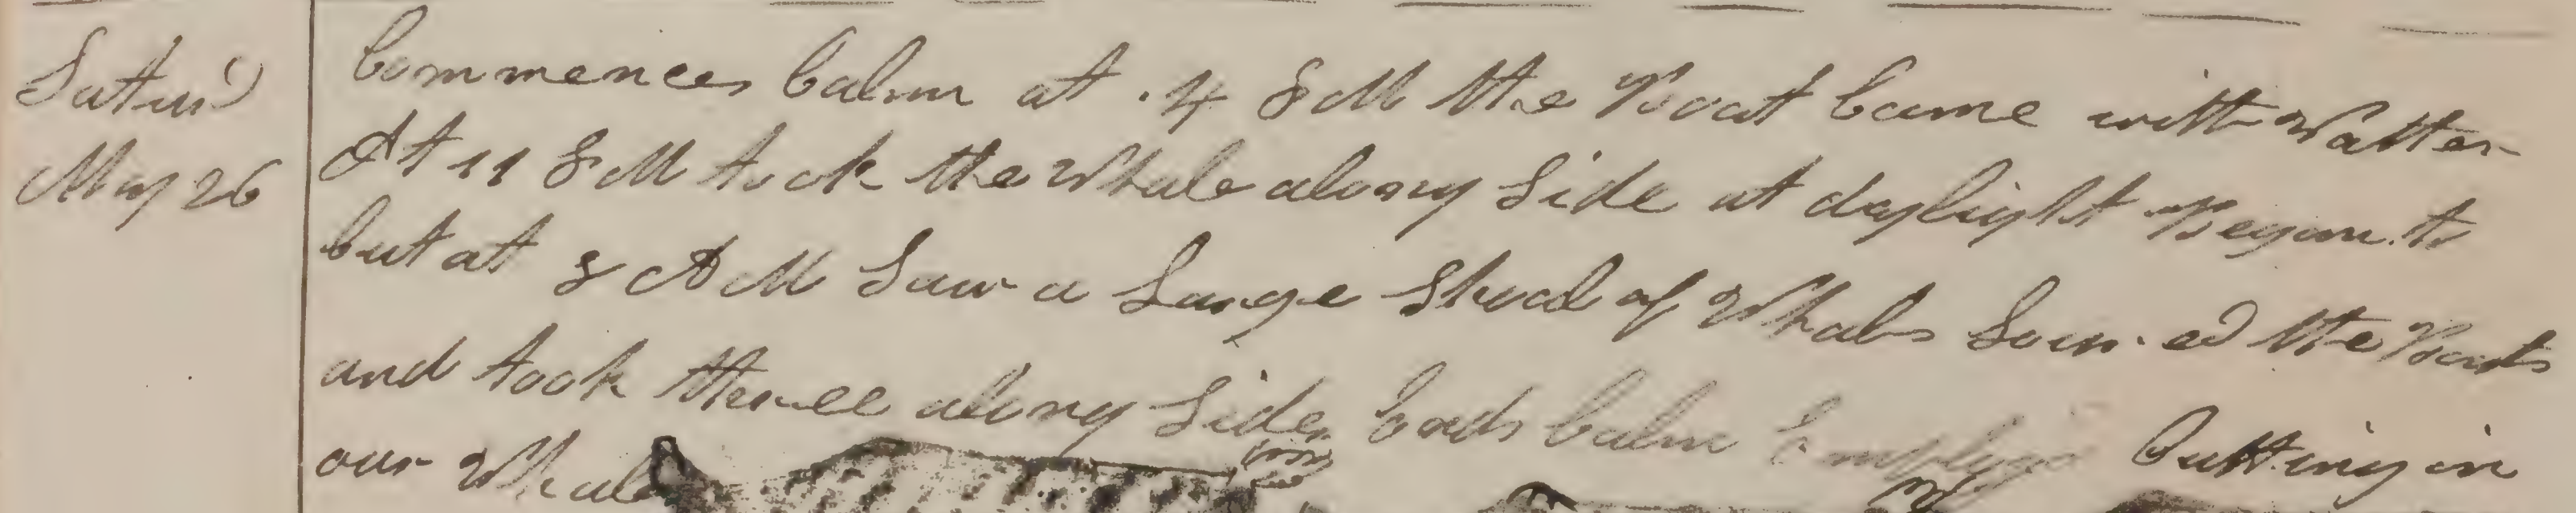 Saturd
May 26
Commences Calm at 4 P M the Boat Came with Watter
At 11 P M took the Whale along Side at daylight Began to
but at 8 A M Saw a Large Shoal of Whals Lowered the Boats
and took threee along Side Ends Calm Employd Cutting in
our Whale